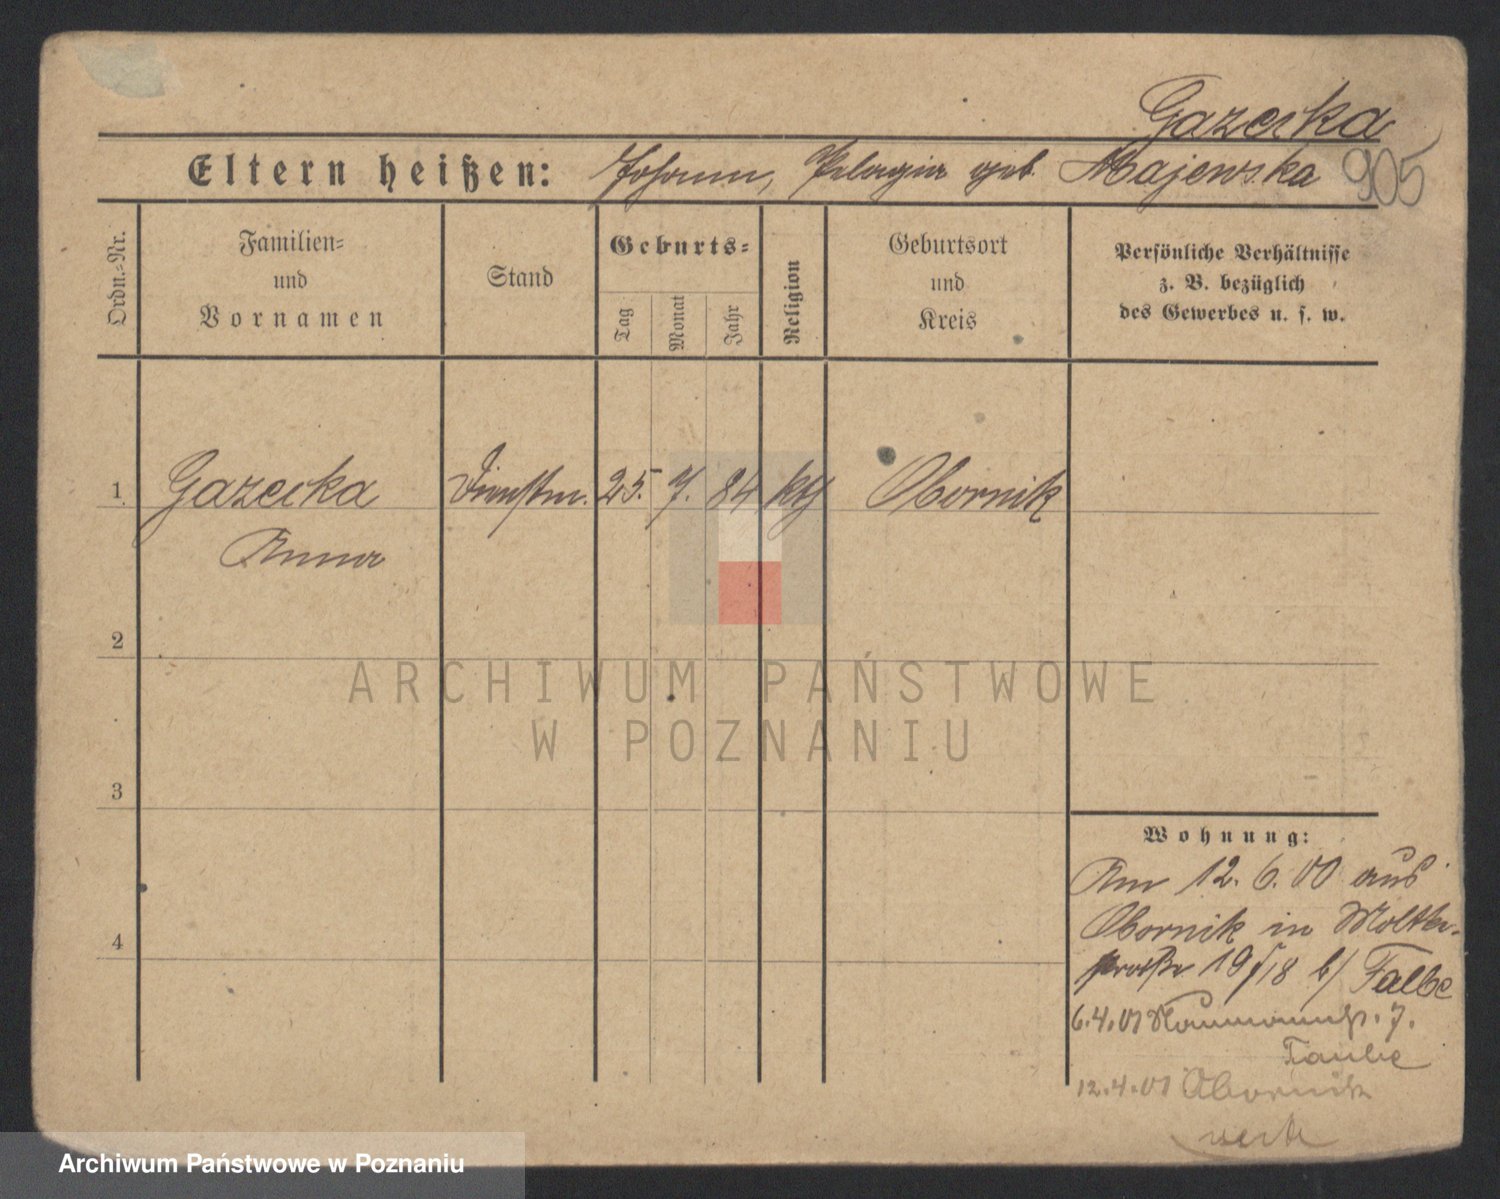 Gazecka
Eltern heißen: Johann, Pelagia geb. Majewska 905
Ordn.=Nr.
Familien=
und
Vornamen
Stand
Geburts=
Tag
Monat
Jahr
Religion
Geburtsort
und
Kreis
Persönliche Verhältnisse
z. B. bezüglich
des Gewerbes u. s. w.
1 Gazecka Dienstm. 25. 7. 84 kth Obornik
Anna
2
3
4
ARCHIWUM PAŃSTWOWE
W POZNANIU
Wohnung:
Am 12. 6. 00 aus
Obornik in Moltke-
straße 19/18 b/ Falbe
6.4.01 Naumannstr. 7.
Taube
12.4.01 Obornik
Archiwum Państwowe w Poznaniu